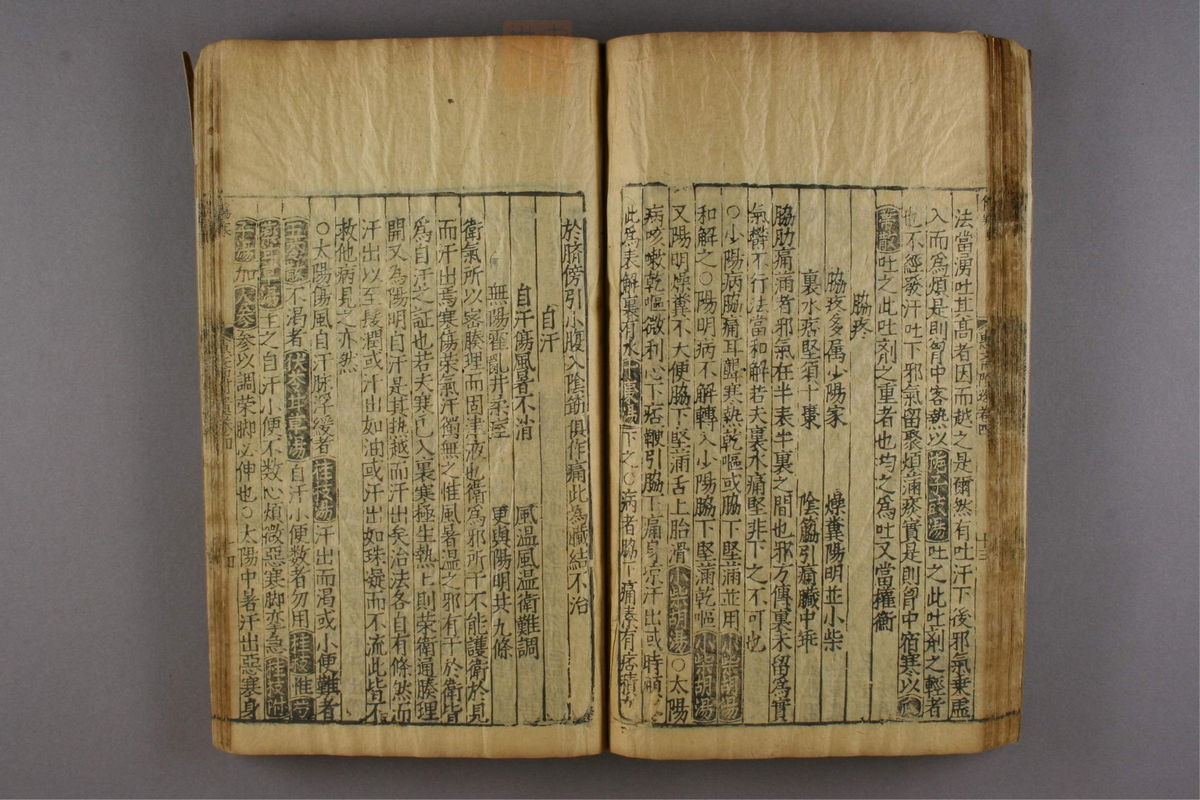 法當湧吐其高者因而越之是爾然有吐汗下後邪氣乗虛
入而爲煩是則胷中客熱以梔子豉湯吐之此吐剤之輕者
也不經發汗吐下邪氣留聚煩滿痰實是則胷中宿寒以瓜
蒂散吐之此吐剤之重者也均之爲吐又當權衡
脇疼
脇疼多属少陽家 燥糞陽明並小柴
裏水痞堅須十棗 陰筋引痛臓中乖
脇肋痛滿者邪氣在半表半裏之間也邪方傳裏未留爲實
氣欝不行法當和解若夫裏水痛堅非下之不可也
○少陽病脇痛耳聾寒熱乾嘔或脇下堅滿並用小柴胡湯
和解之○陽明病不解轉入少陽脇下堅滿乾嘔小柴胡湯
又陽明燥糞不大便脇下堅滿舌上胎滑小柴胡湯○太陽
病咳嗽乾嘔微利心下痞鞕引脇下痛身凉汗出或時頭
此爲表解裏有水十棗湯下之○病者脇下痛素有痞積
於臍傍引小腹入陰筋俱作痛此為臓結不治
自汗
自汗傷風暑不消 風温風温衛難調
無陽霍亂并柔痓 更與陽明共九條
衛氣所以客腠理而固津液也衛為邪所干不能護衛於是
而汗出焉寒傷荣氣汗獨無之惟風暑温之邪有干於衛皆
爲自汗之証也若夫寒已入裏寒極生熱上則荣衛通腠理
開又為陽明自汗是其熱越而汗出矣治法各自有條然而
汗出以至髮潤或汗出如油或汗出如珠凝而不流此皆不
救他病見之亦然
○太陽傷風自汗脉浮緩者桂枝湯汗出而渴或小便難者
五苓散不渴者茯苓甘草湯自汗小便数者勿用桂枝惟芍
藥甘草湯主之自汗小便不数心煩微惡寒脚攣急桂枝附
子湯加人参参以調荣脚必伸也○太陽中暑汗出惡寒身